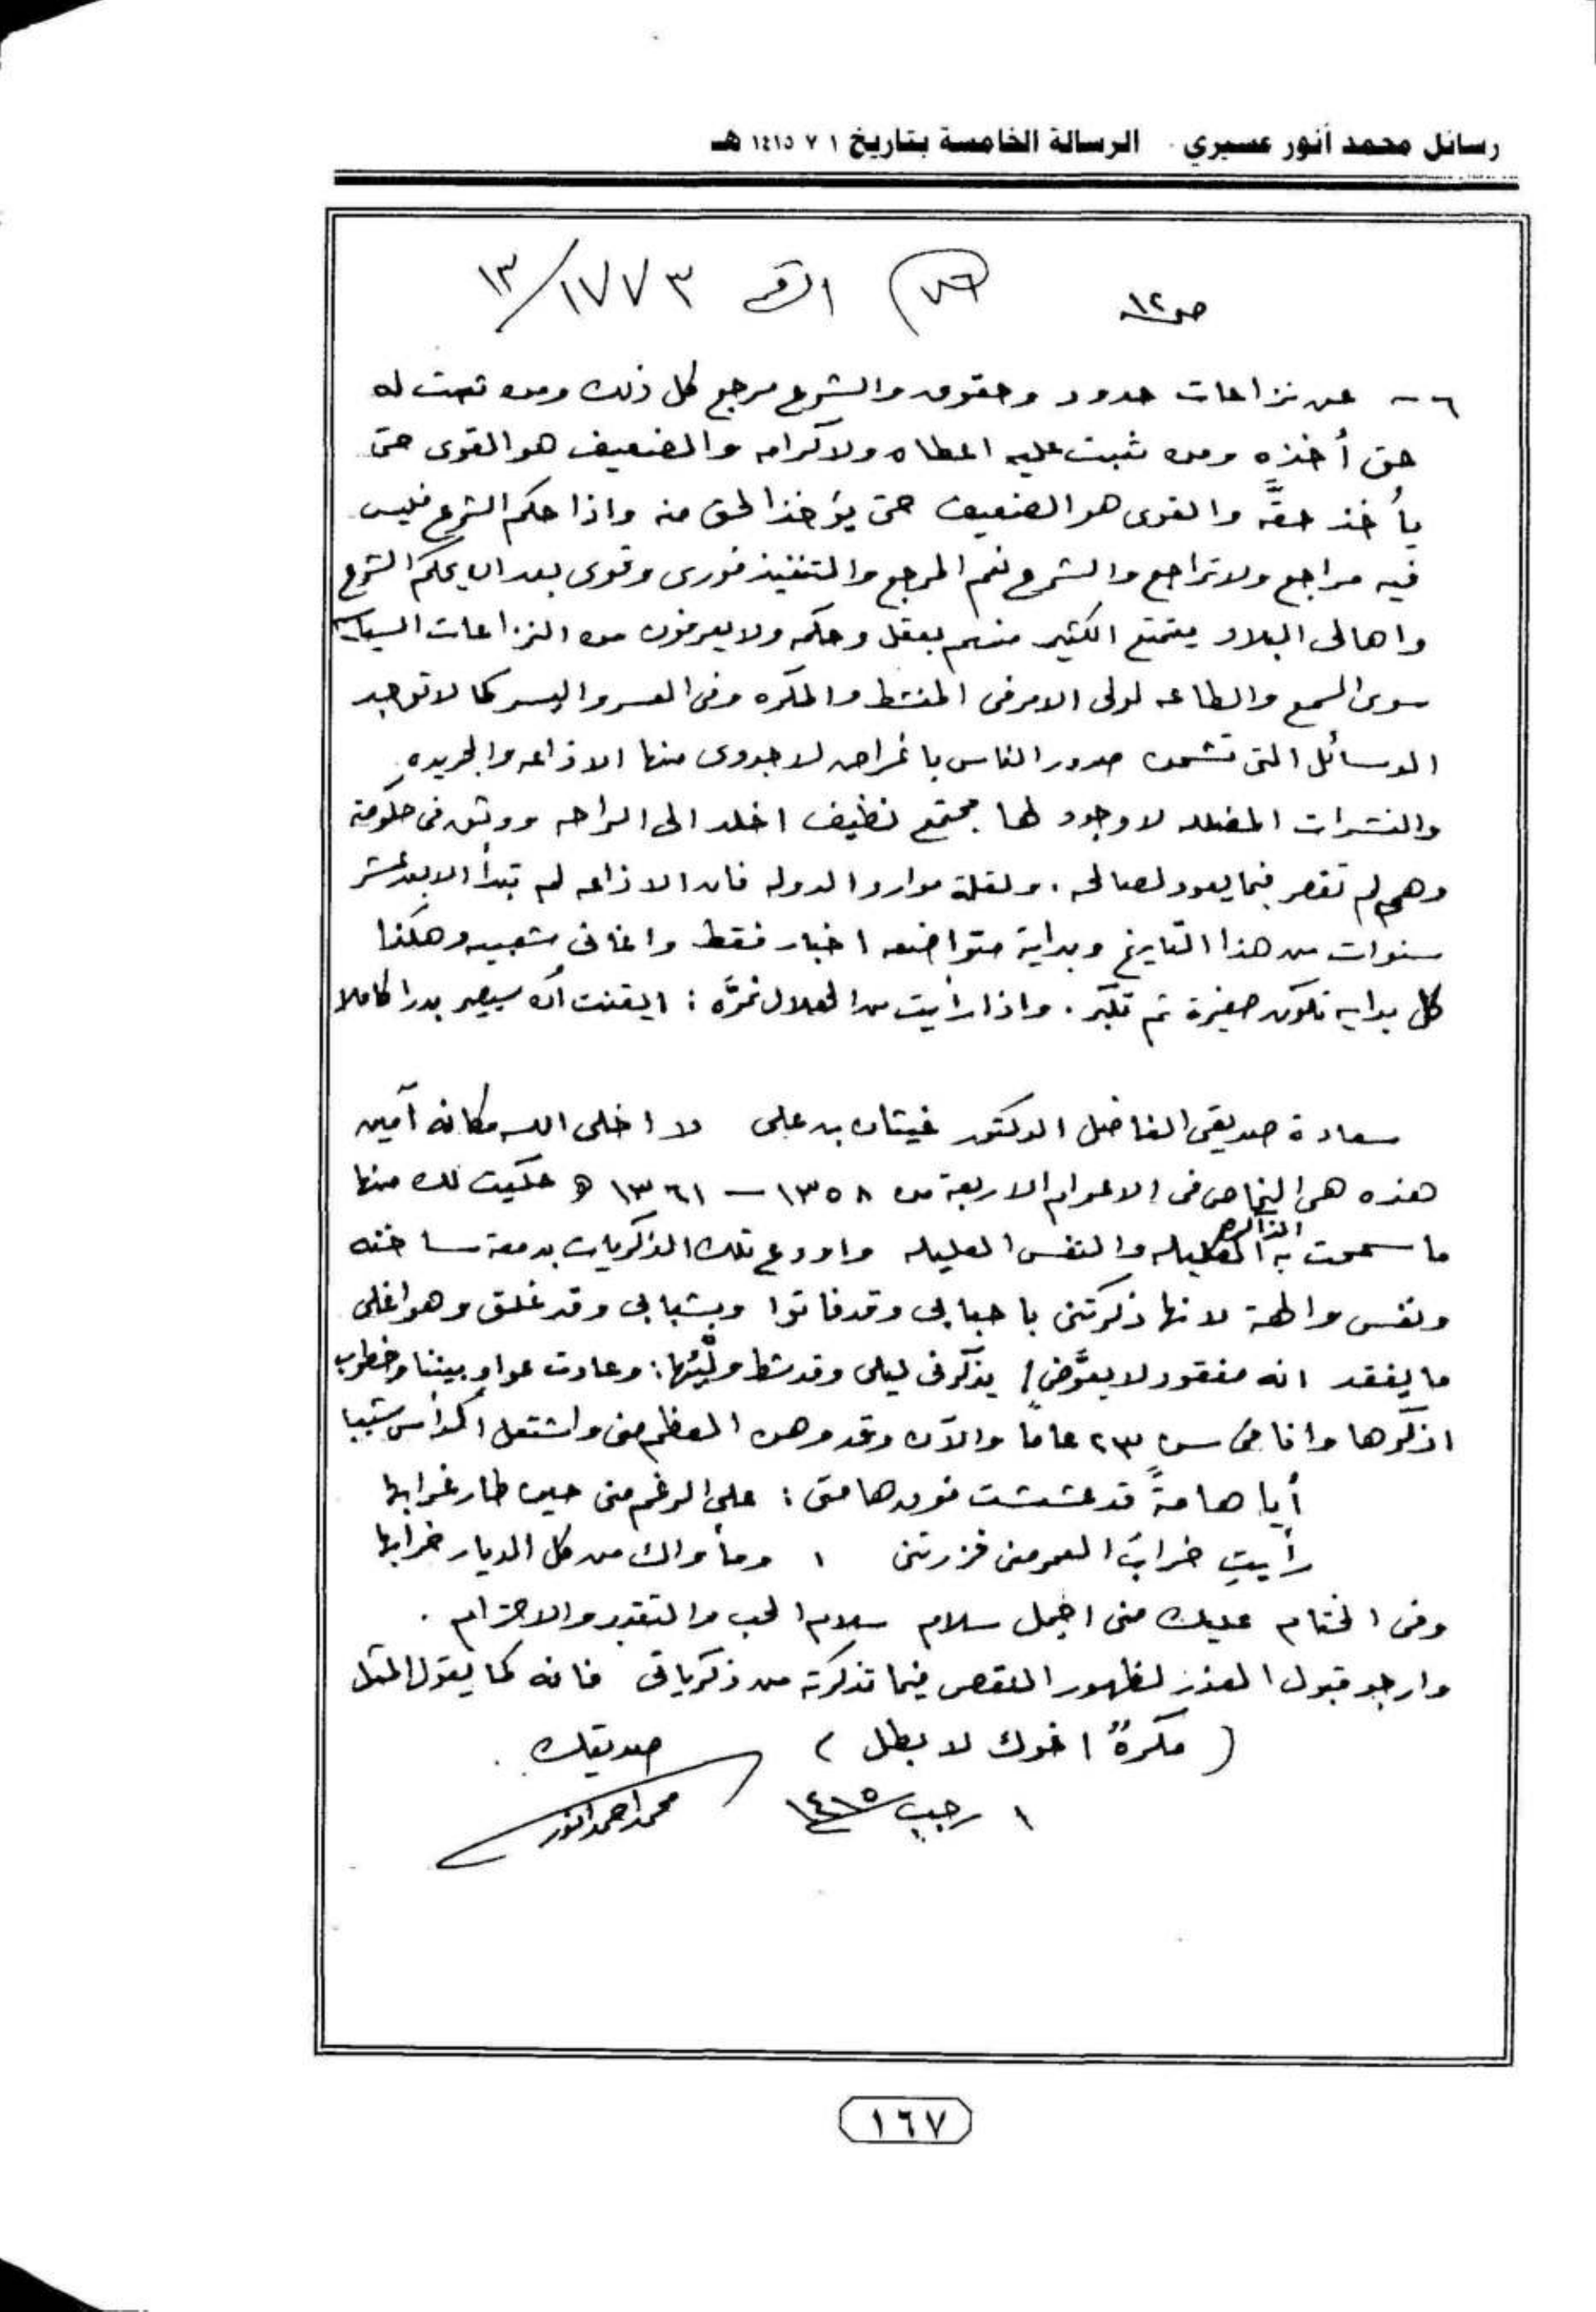 رسائل محمد أنور عسيري. الرسالة الخامسة بتاريخ ١ ٧ ١٤١٥ هـ
ص١٢ ٧٦ الرقم ١٧٧٣/١٣
٦- عن نزاعات حدود وحقوق والشرع مرجع كل ذلك ومن ثبت له
حق أخذه ومن ثبت عليه اعطاه ولا كرامه والضعيف هو القوى حتى
يأخذ حقَّه والقوى هو الضعيف حتى يؤخذ الحق منه واذا حكم الشرع فليس
فيه مراجع ولا تراجع والشرع نعم المرجع والتنفيذ فورى وقوى بعد ان يحكم الشرع
واهالى البلاد يتمتع الكثير منهم بعقل وحكمه ولا يعرفون من النزاعات السياسيه
سوى السمع والطاعه لولى الامر فى المنشط والمكره وفى العسر واليسر كما لا توجد
الوسائل التى تشحن صدور الناس باغراض لا جدوى منها الاذاعه والجريده
والنشرات المضلله لا وجود لها مجتمع نظيف اخلد الى الراحه ووثق فى حكومته
وهى لم تقصر فيما يعود لصالحه. ولقلة موارد الدوله فان الاذاعه لم تبدأ الا بعد عشر
سنوات من هذا التاريخ وبداية متواضعه اخبار فقط واغانى شعبيه وهكذا
كل بدايه تكون صغيرة ثم تكبر. واذا رأيت من الهلال نموَّه : ايقنت أن سيصير بدرا كاملا
سعادة صديقى الفاضل الدكتور غيثان بن على لا اخلى الله مكانه آمين
هذه هى النماص فى الاعوام الاربعة من ١٣٥٨ – ١٣٦١ هـ حكيت لك منها
ما سمحت به الذاكره الكليله والنفس العليله واودع تلك الذكريات بدمعة ساخنه
ونفس والهة لانها ذكرتنى باحبابى وقد فاتوا وبشبابى وقد غلق وهو اغلى
ما يفقد انه مفقود لا يعوَّض / يذكرنى ليلى وقد شط وليُّها : وعادت عواد بيننا وخطوب
اذكرها وانا فى سن ٢٣ عاماً والآن وقد وهن العظم منى واشتعل الرأس شيبا
أيا هامةً قد عششت فوق هامتى : على الرغم منى حين طار غرابها
رأيتِ خرابَ العمر منى فزرتنى ، ومأواك من كل الديار خرابها
وفى الختام عليك منى اجمل سلام سلام الحب والتقدير والاحترام .
وارجو قبول العذر لظهور النقص فيما تذكرته من ذكرياتى فانه كما يقول المثل
( مكرهٌ اخوك لا بطل ) صديقك .
١ رجب ١٤١٥ محمد احمد انور
١٦٧